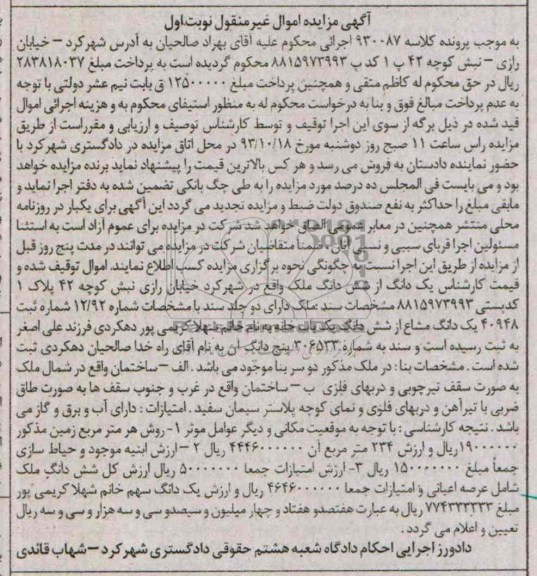 آگهی مزایده اموال غیر منقول نوبت اول
به موجب پرونده کلاسه ۹۳۰۰۸۷ اجرائی محکوم علیه آقای بهزاد صالحیان به آدرس شهرکرد – خیابان
رازی – نبش کوچه ۴۲ پ ۱ کد پ ۸۸۱۵۹۷۳۹۹۳ محکوم گردیده است به پرداخت مبلغ ۲۸۳۸۱۸۰۳۷
ریال در حق محکوم له کاظم متقی و همچنین پرداخت مبلغ ۱۲۵۰۰۰۰۰ ق بابت نیم عشر دولتی با توجه
به عدم پرداخت مبالغ فوق و بنا به درخواست محکوم له به منظور استیفای محکوم به و هزینه اجرائی اموال
قید شده در ذیل برگه از سوی این اجرا توقیف و توسط کارشناس توصیف و ارزیابی و مقرراست از طریق
مزایده راس ساعت ۱۱ صبح روز دوشنبه مورخ ۹۳/۱۰/۱۸ در محل اتاق مزایده در دادگستری شهرکرد با
حضور نماینده دادستان به فروش می رسد و هر کس بالاترین قیمت را پیشنهاد نماید برنده مزایده خواهد
بود و می بایست فی المجلس ده درصد مورد مزایده را به طی چگ بانکی تضمین شده به دفتر اجرا نماید و
مابقی مبلغ را حداکثر به نفع صندوق دولت ضبط و مزایده تجدید می گردد این آگهی برای یکبار در روزنامه
محلی منتشر همچنین در معابر عمومی الصاق خواهد شد شرکت در مزایده برای عموم آزاد است به استثنا
مسئولین اجرا قربای سببی و نسبی آنان – ضمنا متقاضیان شرکت در مزایده می توانند در مدت پنج روز قبل
از مزایده از طریق این اجرا نسبت به چگونگی نحوه برگزاری مزایده کسب اطلاع نمایند. اموال توقیف شده و
قیمت کارشناس یک دانگ از شش دانگ ملک واقع در شهرکرد خیابان رازی نبش کوچه ۴۲ پلاک ۱
کدپستی ۸۸۱۵۹۷۳۹۹۳ مشخصات سند ملک دارای دو جلد سند با مشخصات شماره ۱۲/۹۲ شماره ثبت
۴۰۹۴۸ یک دانگ مشاع از شش دانگ یکباب خانه به نام خانم شهلا کریمی پور دهکردی فرزند علی اصغر
به ثبت رسیده است و سند به شماره ۳۰۶۵۳۳ پنج دانگ آن به نام آقای راه خدا صالحیان دهکردی ثبت
شده است . مشخصات بنا : در ملک مذکور دو سر بنا موجود می باشد . الف – ساختمان واقع در شمال ملک
به صورت سقف تیرچوبی و دربهای فلزی ب – ساختمان واقع در غرب و جنوب سقف ها به صورت طاق
ضربی با تیرآهن و دربهای فلزی و نمای کوچه پلاستر سیمان سفید . امتیازات : دارای آب و برق و گاز می
باشد . نتیجه کارشناسی : با توجه به موقعیت مکانی و دیگر عوامل موثر ۱- روش هر متر مربع زمین مذکور
۱۹۰۰۰۰۰۰ ریال و ارزش ۲۳۴ متر مربع آن ۴۴۴۶۰۰۰۰۰۰ ریال ۲ – ارزش ابنیه موجود و حیاط سازی
جمعاً مبلغ ۱۵۰۰۰۰۰۰۰ ریال ۳- ارزش امتیازات جمعا ۵۰۰۰۰۰۰۰ ریال ارزش کل شش دانگ ملک
شامل عرصه اعیانی و امتیازات جمعا ۴۶۴۶۰۰۰۰۰۰ ریال و ارزش یک دانگ سهم خانم شهلا کریمی پور
مبلغ ۷۷۴۳۳۳۳۳۳ ریال به عبارت هفتصدو هفتاد و چهار میلیون و سیصدو سی و سه هزار و سی و سه ریال
تعیین و اعلام می گردد .
دادورز اجرایی احکام دادگاه شعبه هشتم حقوقی دادگستری شهرکرد – شهاب قائدی